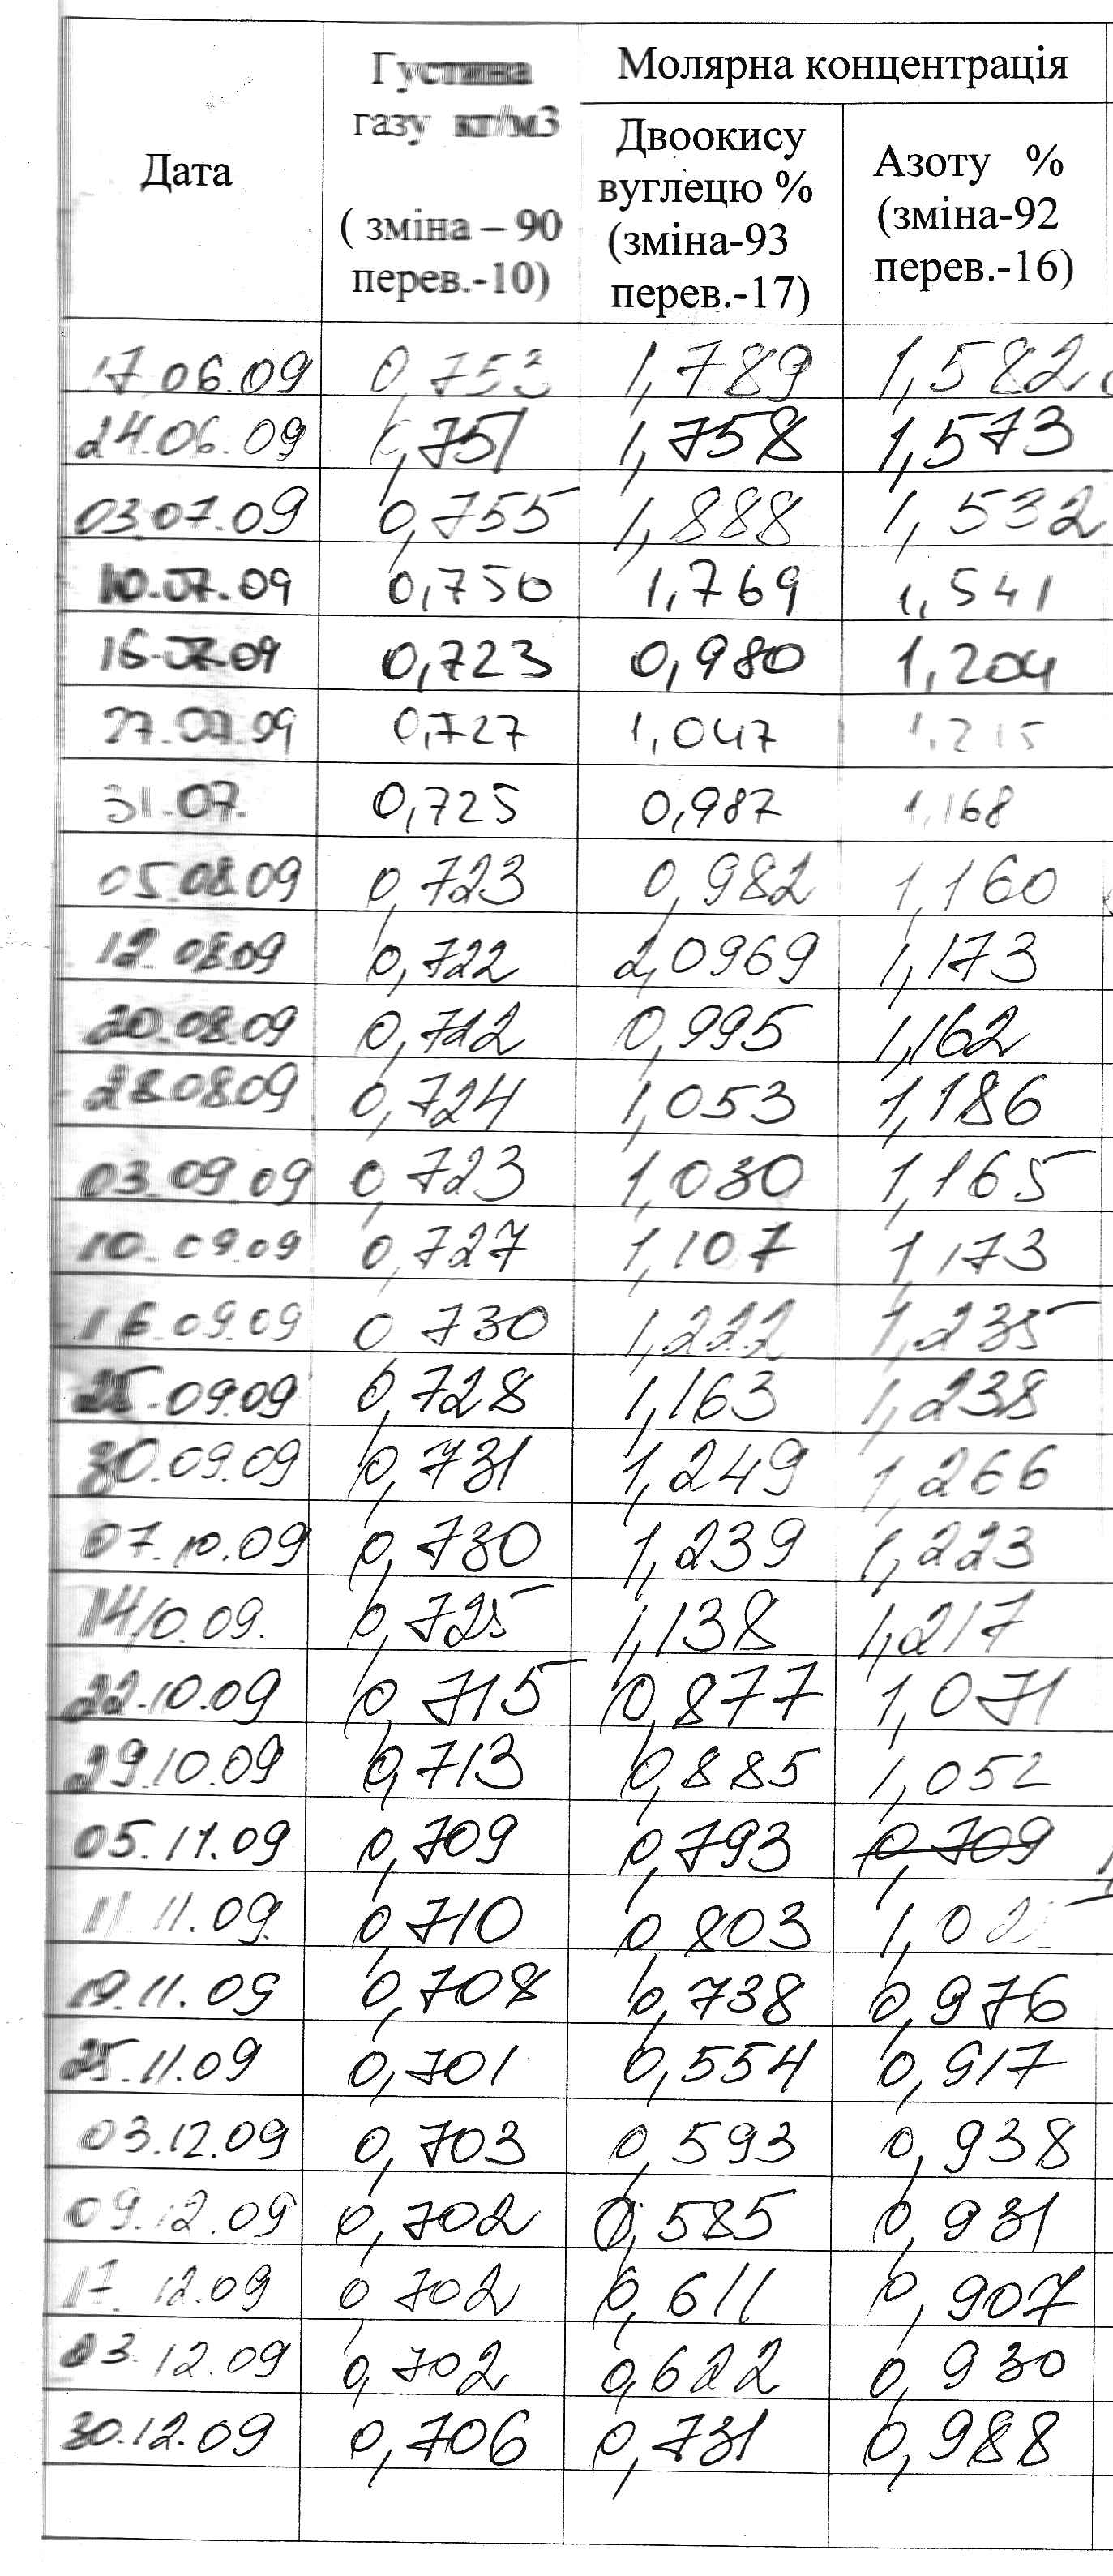 Дата
Густина газу кг/м3 (зміна – 90 перев.-10)
Молярна концентрація
Двоокису вуглецю % (зміна-93 перев.-17)
Азоту % (зміна-92 перев.-16)
17.06.09 0,753 1,789 1,582
24.06.09 0,751 1,758 1,573
03.07.09 0,755 1,888 1,532
10.07.09 0,750 1,769 1,541
16.07.09 0,723 0,980 1,204
27.07.09 0,727 1,047 1,215
31.07. 0,725 0,987 1,168
05.08.09 0,723 0,982 1,160
12.08.09 0,722 2,0969 1,173
20.08.09 0,722 0,995 1,162
28.08.09 0,724 1,053 1,186
03.09.09 0,723 1,030 1,165
10.09.09 0,727 1,107 1,173
16.09.09 0 730 1,222 1,235
25.09.09 0,728 1,163 1,238
30.09.09 0,731 1,249 1,266
07.10.09 0,730 1,239 1,223
14.10.09. 0,725 1,138 1,217
22.10.09 0,715 0,877 1,071
29.10.09 0,713 0,885 1,052
05.11.09 0,709 0,793 0,709
11.11.09. 0,710 0,803
19.11.09 0,708 0,738 0,976
25.11.09 0,701 0,554 0,917
03.12.09 0,703 0,593 0,938
09.12.09 0,702 0,585 0,931
17.12.09 0,702 0,611 0,907
23.12.09 0,702 0,622 0,930
30.12.09 0,706 0,731 0,988